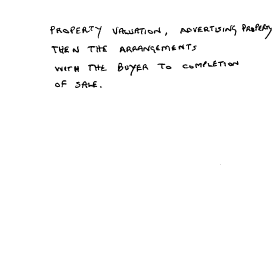 PROPERTY VALUATION, ADVERTISING PROPERTY
THEN THE ARRANGEMENTS
WITH THE BUYER TO COMPLETION
OF SALE.